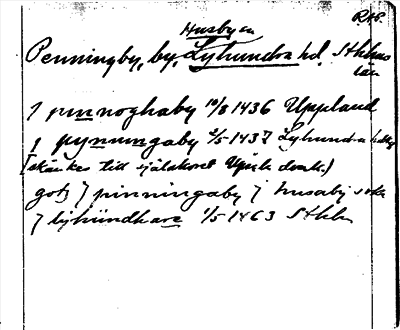 RAP.
Husby sn
Penningby, by, Lyhundra hd. Sthlms
län
J pinnoghaby 10/8 1436 Uppland
J pynungaby 2/5 1437 Lyhundra hd
[skänkes till själakoret Upsala domk.)
gotz J pinningaby J husaby sokn
J lyhundhare 1/5 1463 Sthlm